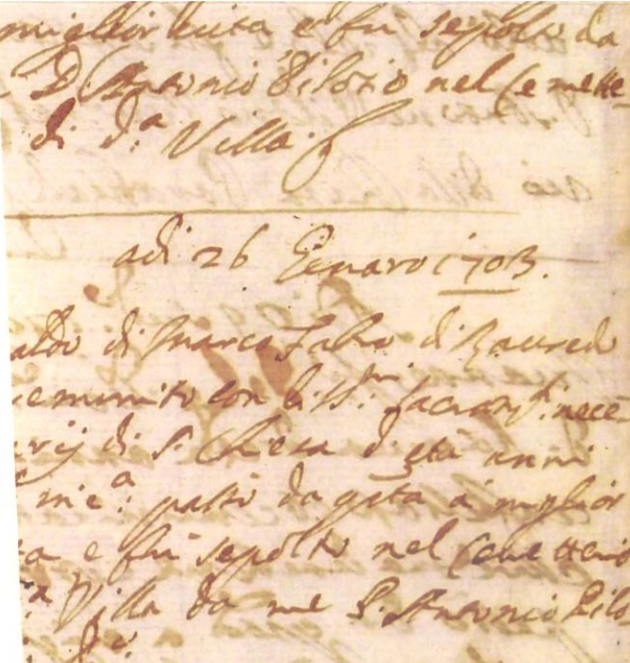 miglior vita e fu sepolto da
D. Antonio Pilosio nel Cemette
di d.a Villa.
adi 26 Genaro 1703.
aldo di Marco Fabro di
remunito con li SS.mi Sacram.ti nece
rij di S. Chiesa d'età anni
in c.a passò da q.sta a miglior
ta e fu sepolto nel Cemetterio
Villa da me P. Antonio Pilo